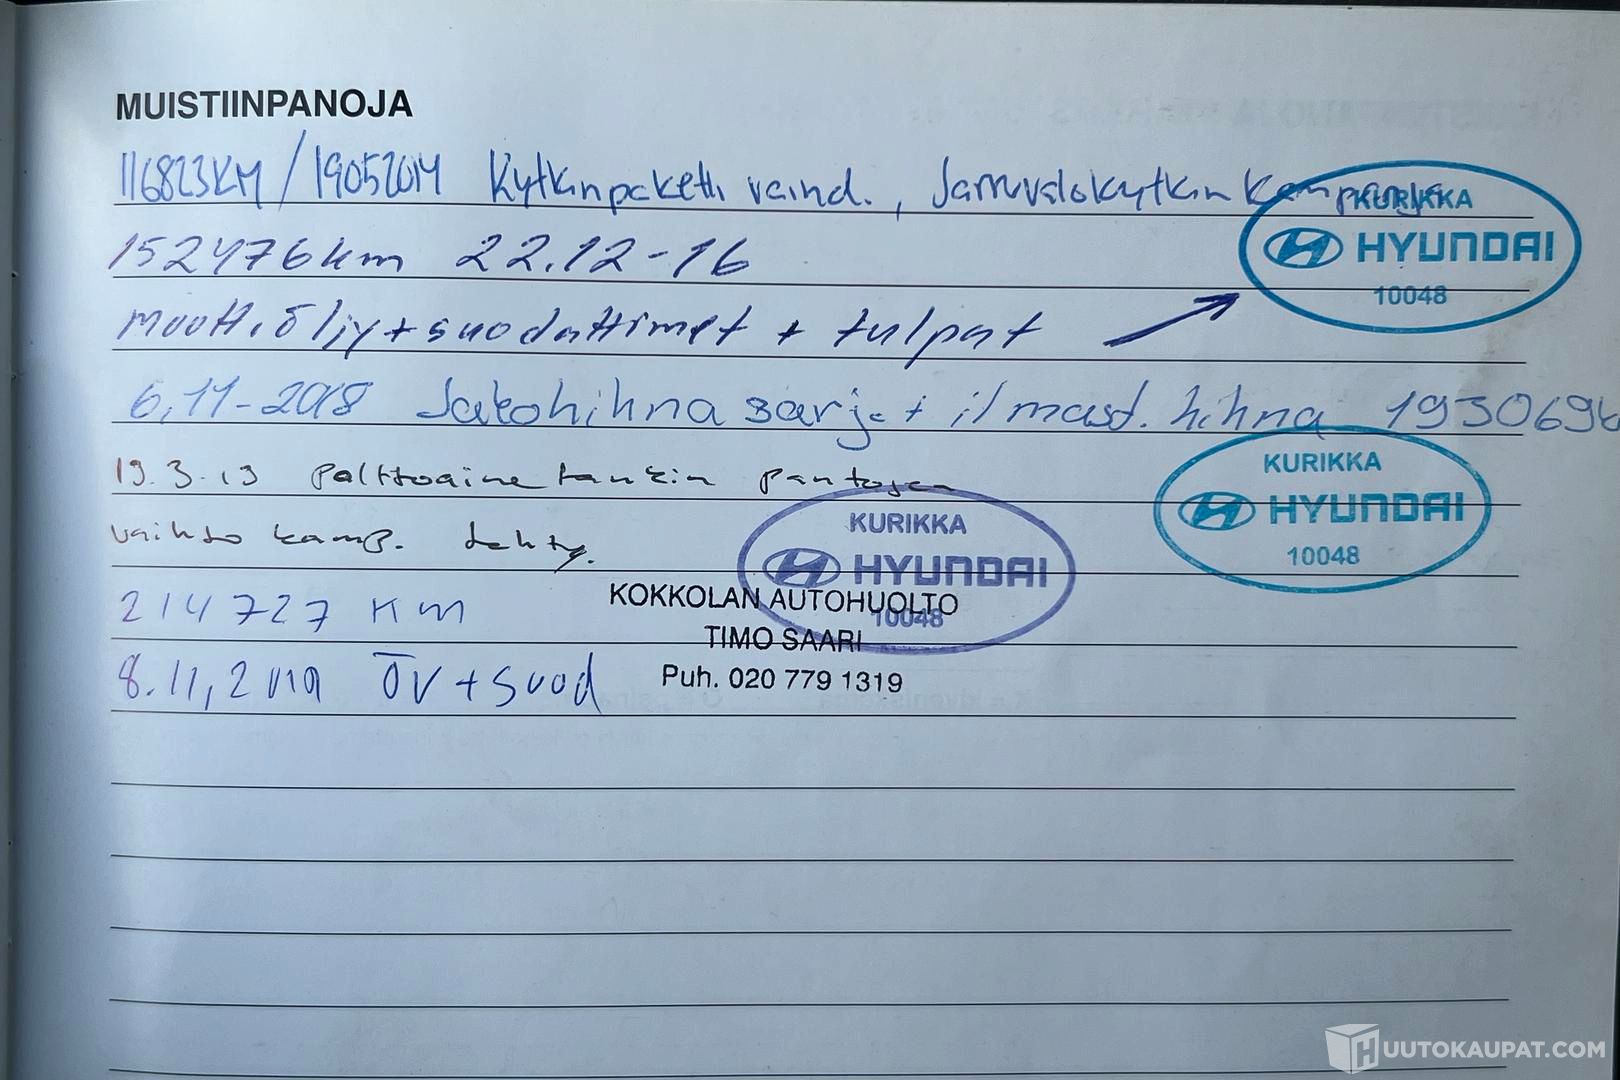 MUISTIINPANOJA
116823KM / 19052014 Kytkinpaketti vaihd., Jarruvalokytkin kampanja
KURIKKA
HYUNDAI
10048
152476km 22.12-16
moott.öljy+suodattimet + tulpat
6.11-2018 Jakohihnasarja+ ilmast.hihna 193069k
KURIKKA
HYUNDAI
10048
19.3.19 polttoainetankin pantojen
vaihto kamp. tehty.
KURIKKA
HYUNDAI
10048
214727 KM
KOKKOLAN AUTOHUOLTO
TIMO SAARI
Puh. 020 779 1319
8.11.2019 ÖV+suod
HUUTOKAUPAT.COM